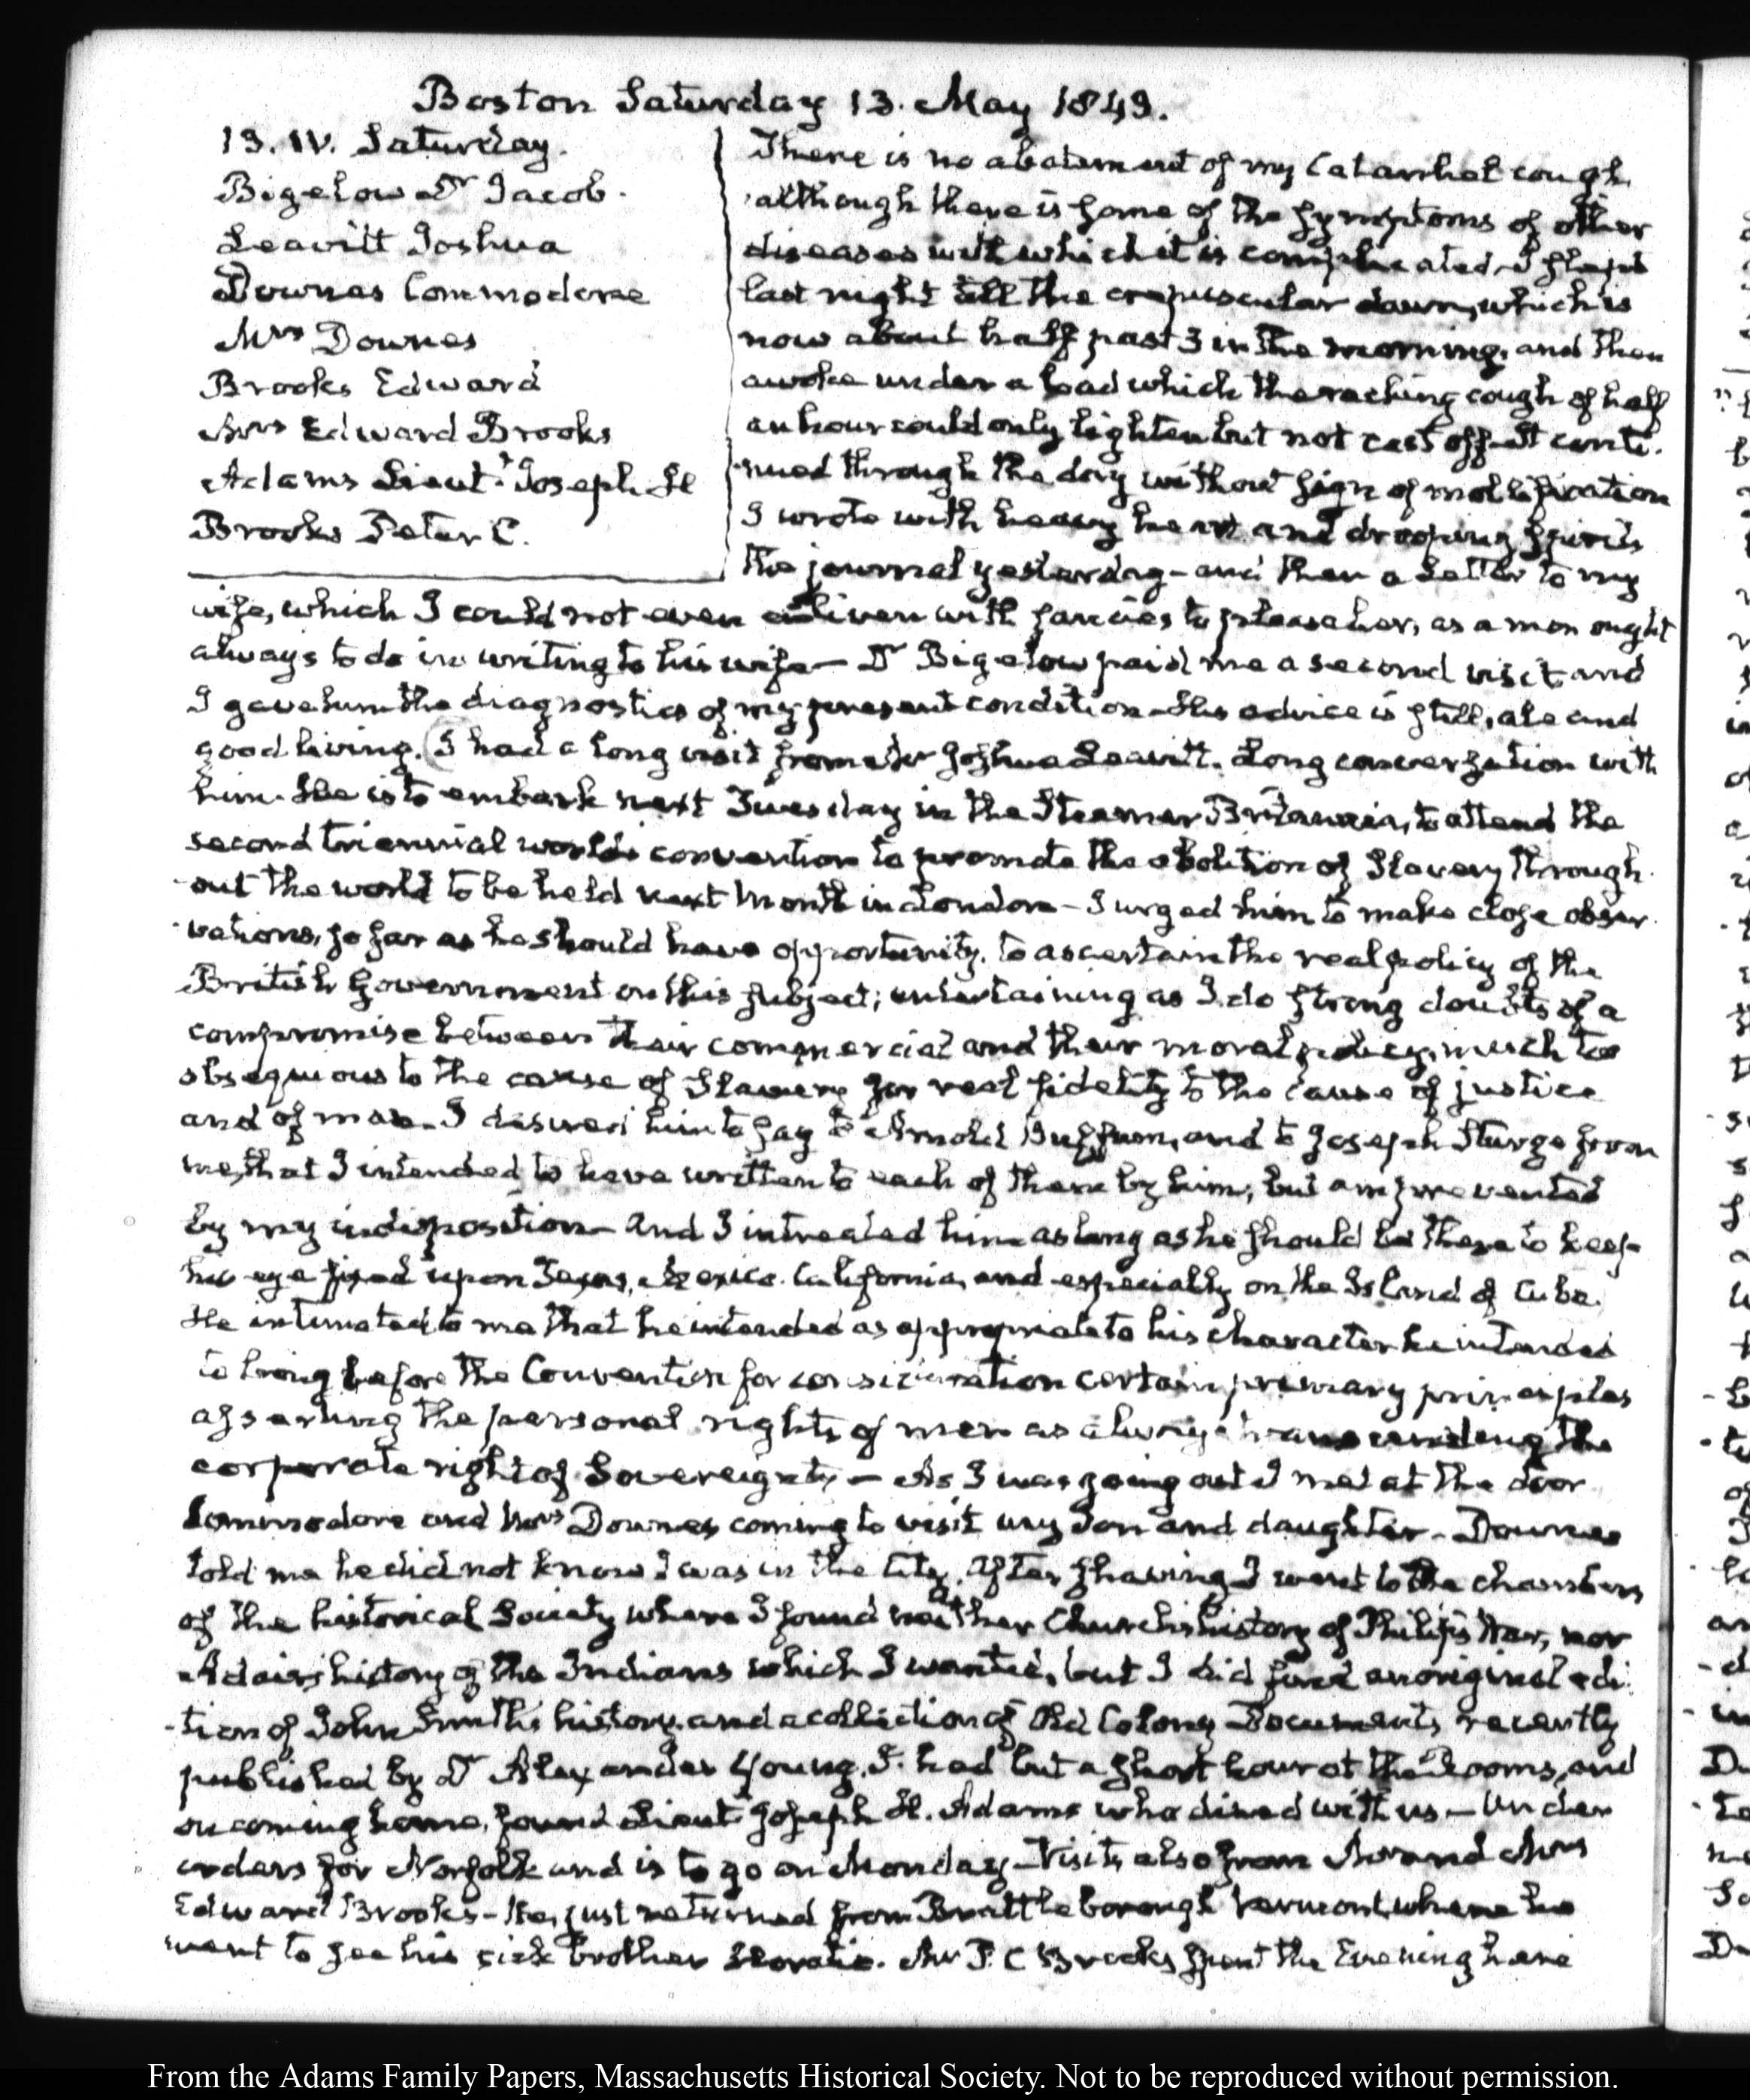 Boston Saturday 13. May 1843.
13. IV. Saturday.
Bigelow Dr Jacob.
Leavitt Joshua
Downes Commodore
Mrs Downes
Brooks Edward
Mrs Edward Brooks
Adams Lieut. Joseph H
Brooks Peter C.
There is no abatement of my Catarrhal cough
although there is some of the symptoms of other
diseases with which it is complicated. I slept
last night till the crepuscular dawn, which is
now about half past 3 in the morning, and then
awoke under a load which the racking cough of half
an hour could only lighten but not cast off. It conti-
nued through the day without sign of mollification
I wrote with heavy heart and drooping spirits
the journal yesterday - and then a Letter to my
wife, which I could not even enliven with fancies to please her, as a man ought
always to do in writing to his wife — Dr Bigelow paid me a second visit and
I gave him the diagnostics of my present condition - His advice is still, ale and
good living. (I had a long visit from Mr Joshua Leavitt. Long conversation with
him. He is to embark next Tuesday in the Steamer Britannia, to attend the
second triennial world's convention to promote the abolition of Slavery through-
out the world to be held next month in London - I urged him to make close obser-
vations, so far as he should have opportunity, to ascertain the real policy of the
British Government on this subject; entertaining as I do strong doubts of a
compromise between their commercial and their moral policy, much too
obsequious to the cause of Slavery for real fidelity to the cause of justice
and of man. I desired him to say to Arnold Buffum, and to Joseph Sturge from
me, that I intended to have written to each of them by him, but am prevented
by my indisposition - And I intreated him as long as he should be there to keep
his eye fixed upon Texas, Mexico. California, and especially on the Island of Cuba.
He intimated to me that he intended as appropriate to his character he intended
to bring before the Convention for consideration certain primary principles
asserting the personal rights of men as always transcending the
corporate right of Sovereignty — As I was going out I met at the door
Commodore and Mrs Downes coming to visit my Son and daughter - Downes
told me he did not know I was in the City. After shaving I went to the chambers
of the historical Society where I found neither Church's history of Philip's War, nor
Adair's history of the Indians which I wanted, but I did find an original edi-
-tion of John Smith's history, and a collection of Old Colony Documents, recently
published by Dr Alexander Young. I had but a short hour at the Rooms, and
on coming home, found Lieut Joseph H. Adams who dined with us - Under
orders for Norfolk and is to go on Monday - Visits also from Mr and Mrs
Edward Brooks - He, just returned from Brattleborough Vermont, where he
went to see his sick brother Horatio. Mr P. C Brooks spent the Evening here
From the Adams Family Papers, Massachusetts Historical Society. Not to be reproduced without permission.